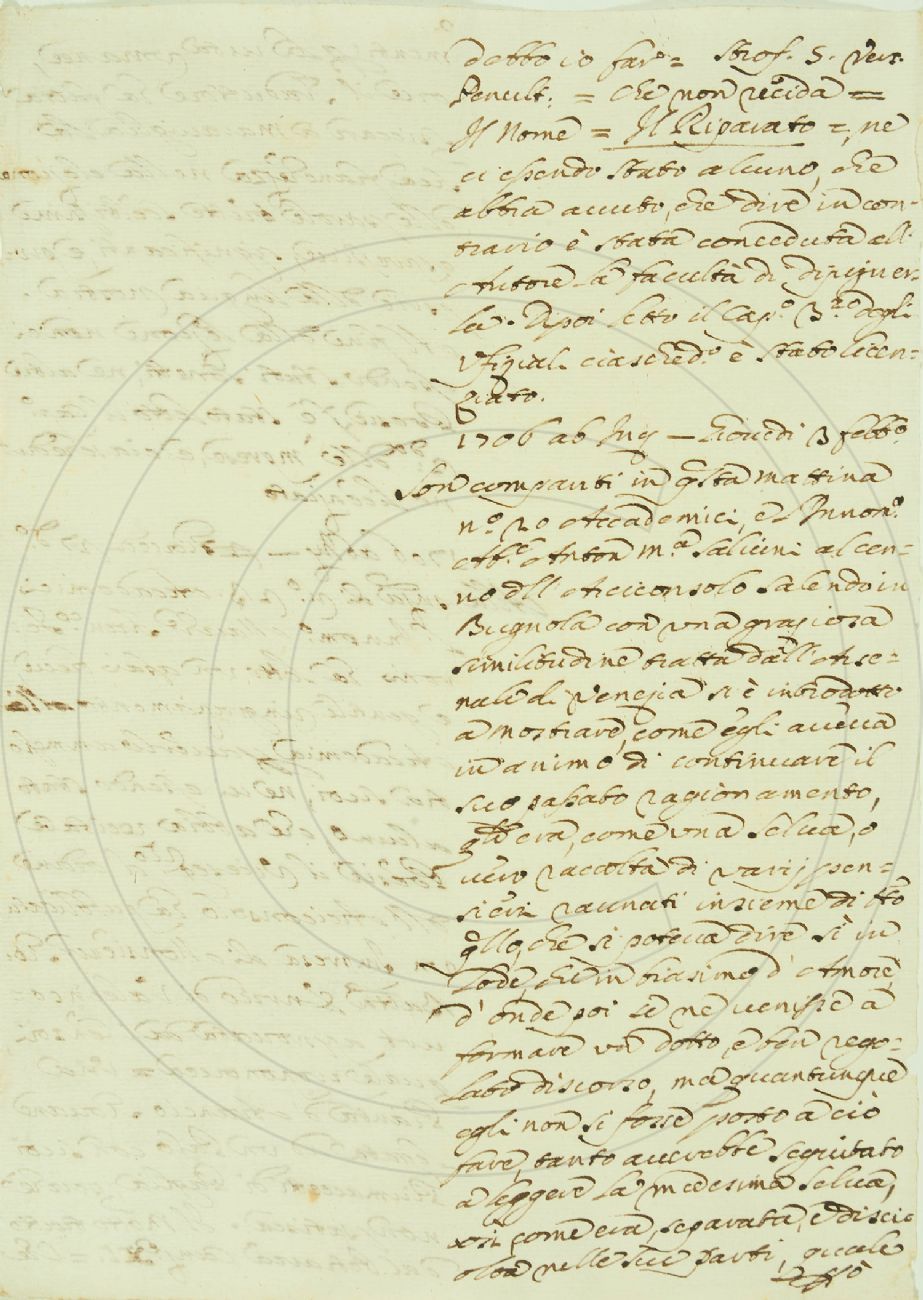 debbo io fare = Strof. 5. Vers.
Penult. = Che non recida =
Il Nome = Il Riparato =, ne
ci essendo stato alcuno, che
abbia avuto, che dire in con-
trario è stata conceduta all'
Autore la facultà di dipigner-
la. Dipoi letto il Cap.o 3.zo degli
Ufizial. ciasched.o è stato licen-
ziato.
1706 ab Inc — Giovedi 3 febb.o
Son compariti in q.sta mattina
n.o 20 Accademici, e l'Innom.o
Ab.e Anton M.a Salvini al cen-
no dll Arciconsolo salendo in
Bugnola con una graziosa
similitudine tratta dall'Arse-
nale di Venezia si è introdotto
a mostrare, come egli aveva
in animo di continuare il
suo passato ragionamento,
q.le era, come una selva, o
vero raccolta di varij pen-
sieri raunati insieme di tto
q.llo, che si poteva dire sì in
lode, che in biasimo d'Amore,
d'onde poi se ne venisse a
formare un dotto, e ben rego-
lato discorso, ma quantunque
egli non si fosse posto a ciò
fare, tanto averebbe seguitato
a leggere la medesima selva,
così come era, separata, e discio
olta nelle sue parti, quale